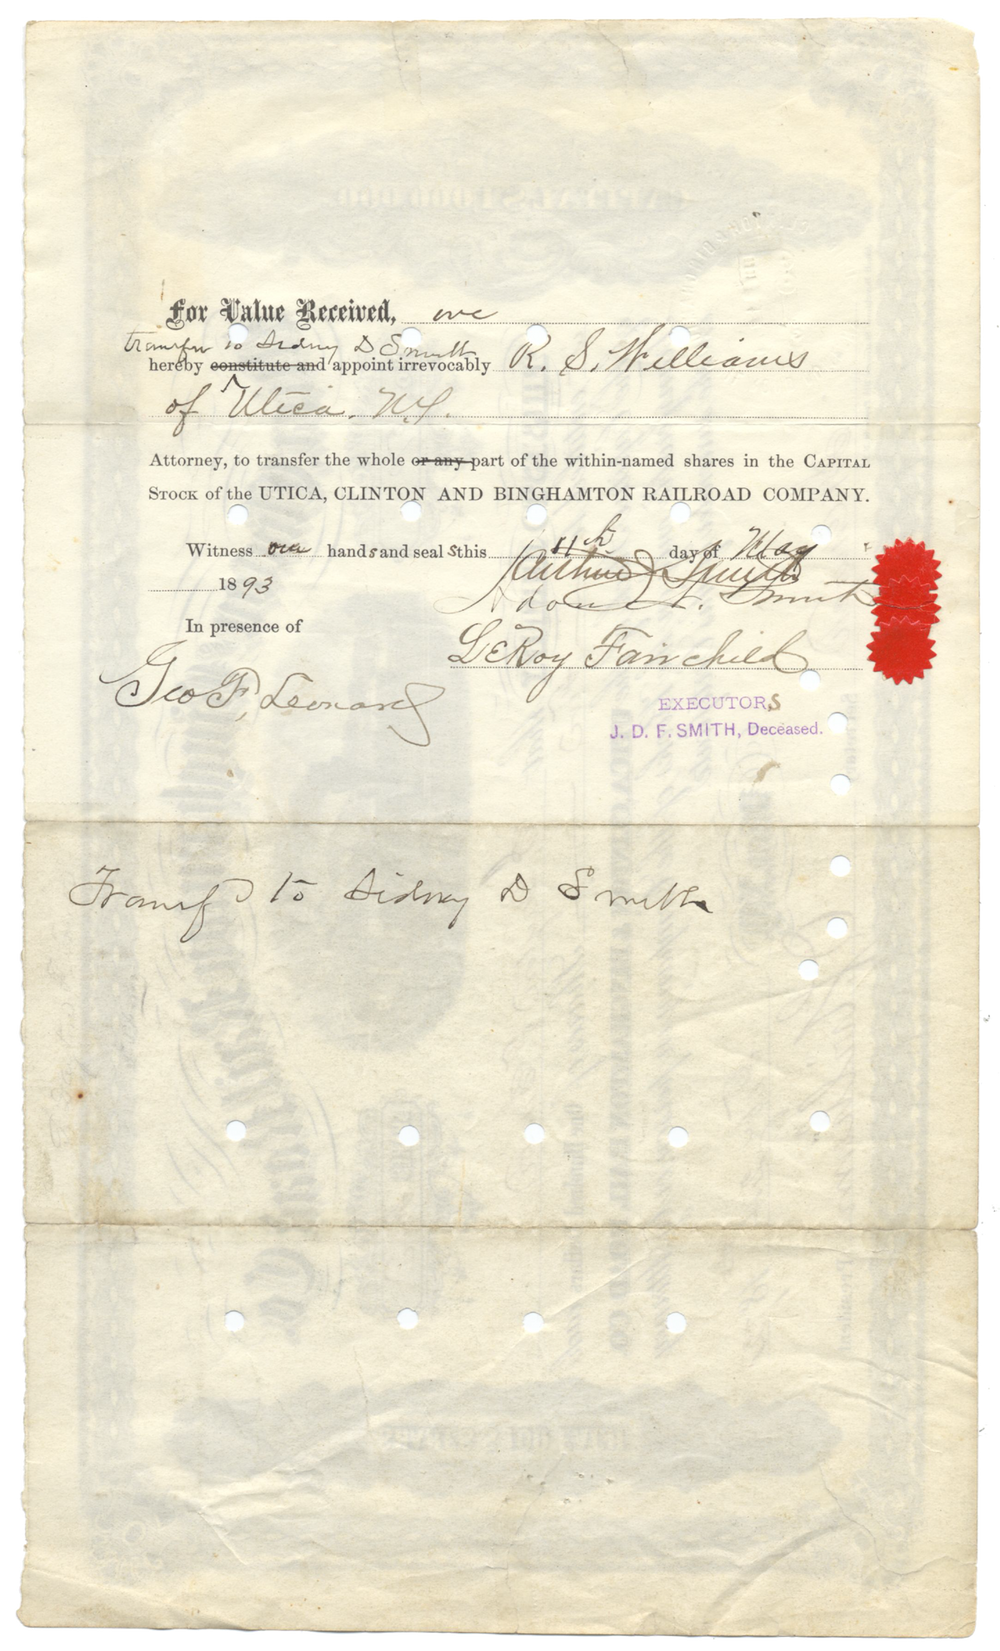 For Value Received, we
transfer to Sidney D Smith
hereby constitute and appoint irrevocably R. S. Williams
of Utica. N.Y.
Attorney, to transfer the whole or any part of the within-named shares in the CAPITAL
STOCK of the UTICA, CLINTON AND BINGHAMTON RAILROAD COMPANY.
Witness our hands and seals this 11th day of May
1893
Arthur Smith
Smith
In presence of
LeRoy Fairchild
Geo F. Leonard
EXECUTORS
J. D. F. SMITH, Deceased.
Transf to Sidney D Smith